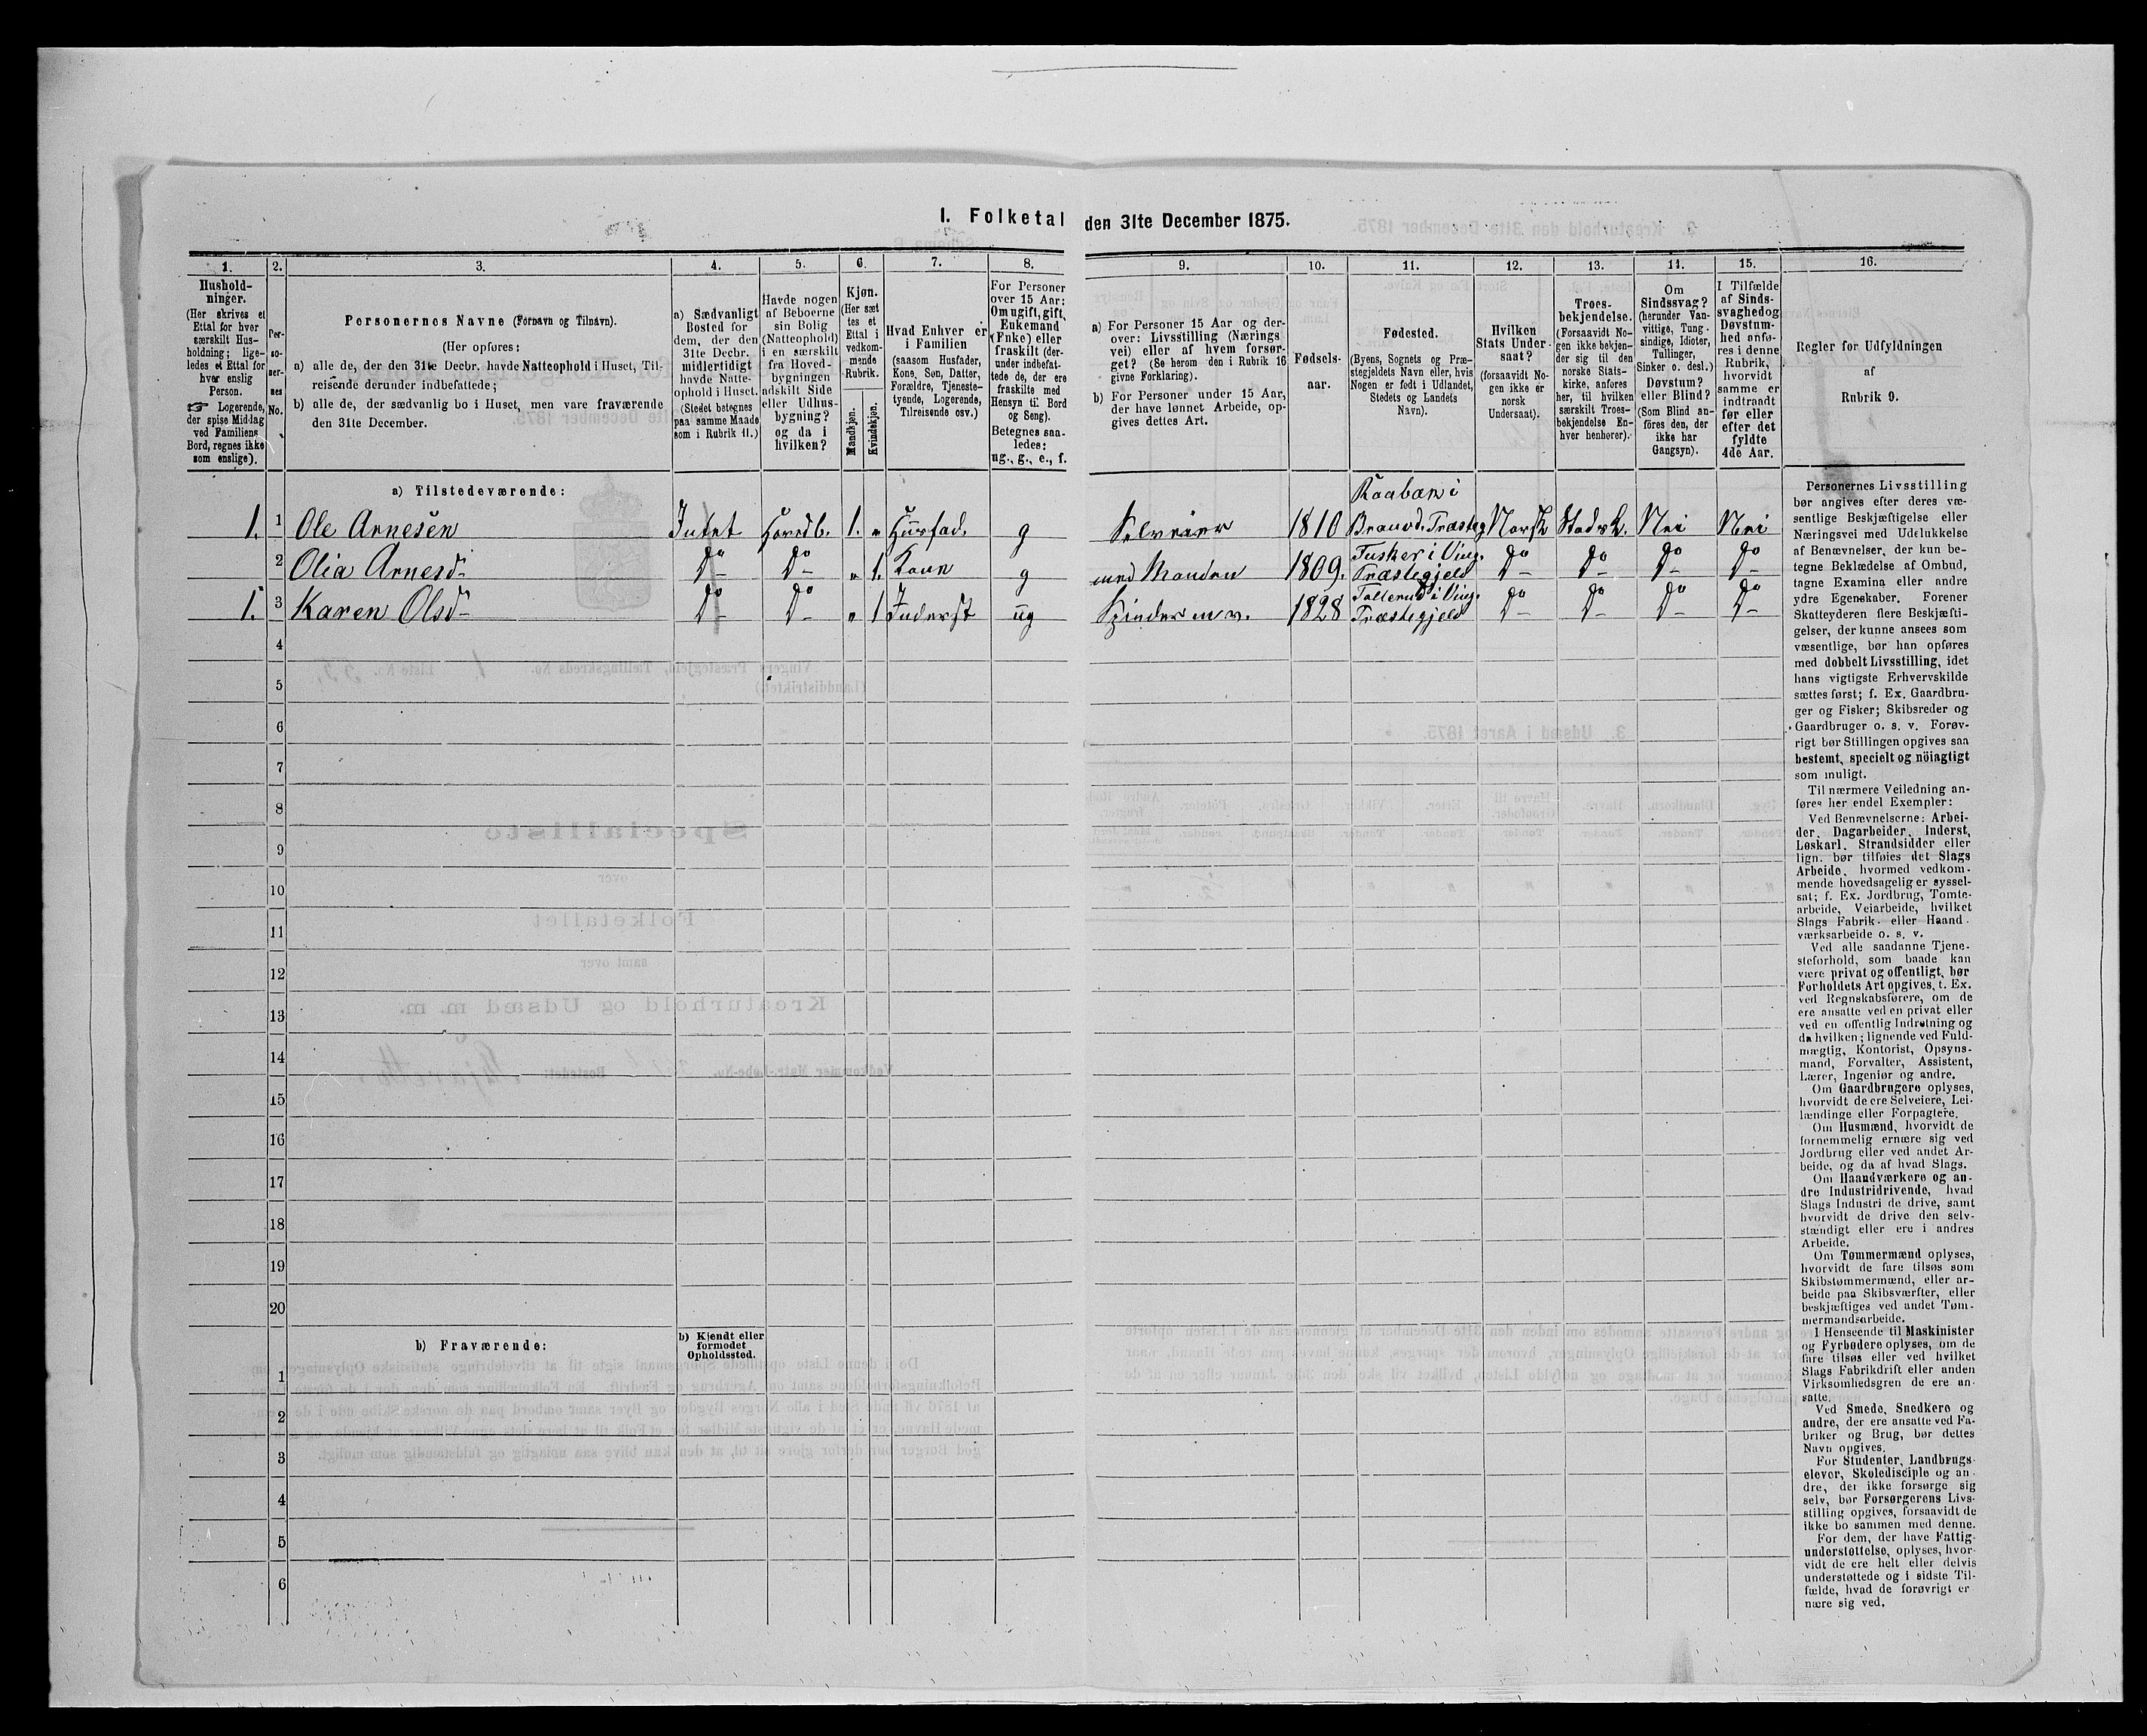 I. Folketal den 31te December 1875.
1. 2. 3. 4. 5. 6. 7. 8. 9. 10. 11. 12. 13. 14. 15. 16.
Hushold-
ninger.
(Her skrives et
Ettal for hver
særskilt Hus-
holdning; lige-
ledes et Ettal for
hver enslig
Person.
☞ Logerende,
der spise Middag
ved Familiens
Bord, regnes ikke
som enslige).
Per-
so-
ner-
nes
No.
Personernes Navne (Fornavn og Tilnavn).
(Her opføres:
a) alle de, der den 31te Decbr. havde Natteophold i Huset, Til-
reisende derunder indbefattede;
b) alle de, der sædvanlig bo i Huset, men vare fraværende
den 31te December.
a) Sædvanligt
Bosted for
dem, der den
31te Decbr.
midlertidigt
havde Natte-
ophold i Huset.
(Stedet betegnes
paa samme Maade
som i Rubrik 11.)
Havde nogen
af Beboerne
sin Bolig
(Natteophold)
i en særskilt
fra Hoved-
bygningen
adskilt Side
eller Udhus-
bygning?
og da i
hvilken?
Kjøn.
(Her sæt
tes et
Ettal i
vedkom-
mende
Rubrik.
Mandkjøn.
Kvindekjøn.
Hvad Enhver er
i Familien
(saasom Husfader,
Kone, Søn, Datter,
Forældre, Tjeneste-
tyende, Logerende,
Tilreisende osv.)
For Personer
over 15 Aar:
Om ugift, gift,
Enkemand
(Enke) eller
fraskilt (der-
under indbefat-
tede de, der ere
fraskilte med
Hensyn til Bord
og Seng).
Betegnes saa-
ledes:
ug., g., e., f.
a) For Personer 15 Aar og der-
over: Livsstilling (Nærings
vei) eller af hvem forsør-
get? (Se herom den i Rubrik 16
givne Forklaring).
b) For Personer under 15 Aar,
der have lønnet Arbeide, op-
gives dettes Art.
Fødsels-
aar.
Fødested.
(Byens, Sognets og Præ-
stegjeldets Navn eller, hvis
Nogen er født i Udlandet,
Stedets og Landets
Navn).
Hvilken
Stats Under-
saat?
(forsaavidt No-
gen ikke er
norsk
Undersaat).
Troes-
bekjendelse.
(Forsaavidt No-
gen ikke bekjen-
der sig til den
norske Stats-
kirke, anføres
her, til hvilken
særskilt Troes-
bekjendelse En-
hver henhører).
Om
Sindssvag?
(herunder Van-
vittige, Tung-
sindige, Idioter,
Tullinger,
Sinker o. desl.)
Døvstum?
eller Blind?
(Som Blind an-
føres den, der
ikke har
Gangsyn).
I Tilfælde
af Sinds-
svaghed og
Døvstum-
hed anfø-
res i denne
Rubrik,
hvorvidt
samme er
indtraadt
før eller
efter det
fyldte
4de Aar.
Regler for Udfyldningen
af
Rubrik 9.
a) Tilstedeværende:
1. 1 Ole Arnesen Intet Hovedb. 1. " Husfad. g Selveier 1810 Raabæk i Brandv. Præsteg Norsk Statsk. Nei Nei
2 Olia Arnesd- Do Do " 1. Kone g med Manden 1809. Tusker i Ving. Præstegjeld Do Do Do Do
1. 3 Karen Olsd- Do Do " 1 Inderst ug Spinder m v. 1828 Tollerud i Ving. Præstegjeld Do Do Do Do
4
5
6
7
8
9
10
11
12
13
14
15
16
17
18
19
20
b) Fraværende:
b) Kjendt eller
formodet
Opholdssted.
1
2
3
4
5
6
Personernes Livsstilling
bør angives efter deres væ-
sentlige Beskjæftigelse eller
Næringsvei med Udelukkelse
af Benævnelser, der kun be-
tegne Beklædelse af Ombud,
tagne Examina eller andre
ydre Egenskaber. Forener
Skatteyderen flere Beskjæfti-
gelser, der kunne ansees som
væsentlige, bør han opføres
med dobbelt Livsstilling, idet
hans vigtigste Erhvervskilde
sættes først; f. Ex. Gaardbru-
ger og Fisker; Skibsreder og
Gaardbruger o. s. v. Forøv-
rigt bør Stillingen opgives saa
bestemt, specielt og nöiagtigt
som muligt.
Til nærmere Veiledning an-
føres her endel Exempler:
Ved Benævnelserne: Arbei-
der, Dagarbeider, Inderst,
Løskarl, Strandsidder eller
lign. bør tilføies det Slags
Arbeide, hvormed vedkom-
mende hovedsagelig er syssel-
sat; f. Ex. Jordbrug, Tomte-
arbeide, Veiarbeide, hvilket
Slags Fabrik- eller Haand-
værksarbeide o. s. v.
Ved alle saadanne Tjene-
steforhold, som baade kan
være privat og offentligt, bør
Forholdets Art opgives, t. Ex.
ved Regnskabsførere, om de
ere ansatte ved en privat eller
ved en offentlig Indretning og
da hvilken; lignende ved Fuld-
mægtig, Kontorist, Opsyns-
mand, Forvalter, Assistent,
Lærer, Ingeniør og andre.
Om Gaardbrugere oplyses,
hvorvidt de ere Selveiere, Lei-
lændinge eller Forpagtere.
Om Husmænd, hvorvidt de
fornemmelig ernære sig ved
Jordbrug eller ved andet Ar-
beide, og da af hvad Slags.
Om Haandværkere og an-
dre Industridrivende, hvad
Slags Industri de drive, samt
hvorvidt de drive den selv-
stændigt eller ere i andres
Arbeide.
Om Tømmermænd oplyses,
hvorvidt de fare tilsøs som
Skibstømmermænd, eller ar-
beide paa Skibsværfter, eller
beskjæftiges ved andet Tøm-
mermandsarbeide.
I Henseende til Maskinister
og Fyrbødere oplyses, om de
fare tilsøs eller ved hvilket
Slags Fabrikdrift eller anden
Virksomhedsgren de ere an-
satte.
Ved Smede, Snedkere og
andre, der ere ansatte ved Fa-
briker og Brug, bør dettes
Navn opgives.
For Studenter, Landbrugs-
elever, Skoledisciple og an-
dre, der ikke forsørge sig
selv, bør Forsørgerens Livs-
stilling opgives, forsaavidt de
ikke bo sammen med denne.
For dem, der have Fattig-
understøttelse, oplyses, hvor-
vidt de ere helt eller delvis
understøttede og i sidste Til-
fælde, hvad de forøvrigt er-
nære sig ved.